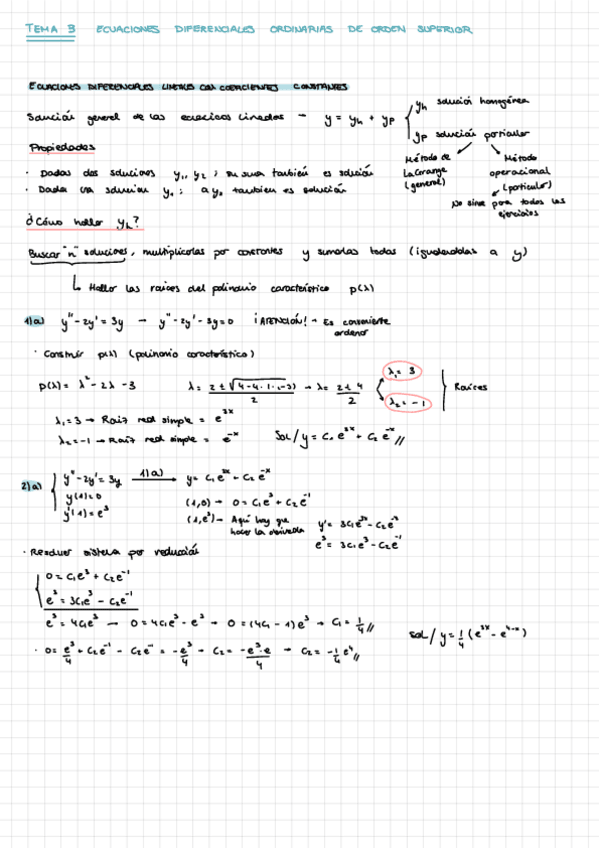 TEMA 3 ECUACIONES DIFERENCIALES ORDINARIAS DE ORDEN SUPERIOR
ECUACIONES DIFERENCIALES LINEALES CON COEFICIENTES CONSTANTES
Solución general de las ecuaciones lineales → y = yh + yp
yh solución homogénea
yp solución particular
Método de LaGrange (general)
Método operacional (particular)
No sirve para todos los ejercicios
Propiedades
· Dadas dos soluciones y₁, y₂ ; su suma también es solución
· Dada una solución y₀ ; a y₀ también es solución
¿Cómo hallar yh?
Buscar "n" soluciones, multiplicarlas por constantes y sumarlas todas (igualandolas a y)
↳ Hallar las raíces del polinomio característico p(λ)
1)a) y'' - 2y' = 3y → y'' - 2y' - 3y = 0 ¡ATENCIÓN! → Es conveniente ordenar
· Construir p(λ) (polinomio característico)
p(λ) = λ² - 2λ - 3 λ = (2 ± √(4-4·1·(-3)))/2 → λ = (2 ± 4)/2 λ₁ = 3 λ₂ = -1 Raíces
λ₁ = 3 → Raíz real simple = e^3x
λ₂ = -1 → Raíz real simple = e^-x Sol/ y = C₁e^3x + C₂e^-x //
2)a) y'' - 2y' = 3y 1)a) → y = C₁e^3x + C₂e^-x
y(1) = 0 (1,0) → 0 = C₁e³ + C₂e⁻¹
y'(1) = e³ (1,e³) → Aquí hay que hacer la derivada
y' = 3C₁e^3x - C₂e^-x
e³ = 3C₁e³ - C₂e⁻¹
· Resolver sistema por reducción
0 = C₁e³ + C₂e⁻¹
e³ = 3C₁e³ - C₂e⁻¹
e³ = 4C₁e³ → 0 = 4C₁e³ - e³ → 0 = (4C₁ - 1)e³ → C₁ = 1/4 //
Sol/ y = 1/4 (e^3x - e^4-x)
· 0 = e³/4 + C₂e⁻¹ → C₂e⁻¹ = -e³/4 → C₂ = -e³·e/4 → C₂ = -1/4 e⁴ //